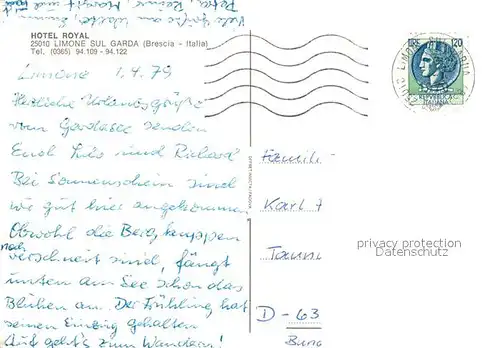 Viele Grüße an
HOTEL ROYAL
25010 LIMONE SUL GARDA (Brescia - Italia)
Tel. (0365) 94.109 - 94.122
Limone 1.4.79
Herzliche Urlaubsgrüße
vom Gardasee senden
Euch und Richard
Bei Sonnenschein sind
wir gut hier angekommen
Obwohl die Bergkuppen
noch verschneit sind, fängt
unten am See schon das
Blühen an. Der Frühling hat
seinen Einzug gehalten
Auf geht's zum Wandern!
LIRE 120
REPUBBLICA
ITALIANA
Famili
Karl
Taunu
D-63
privacy protection
Datenschutz